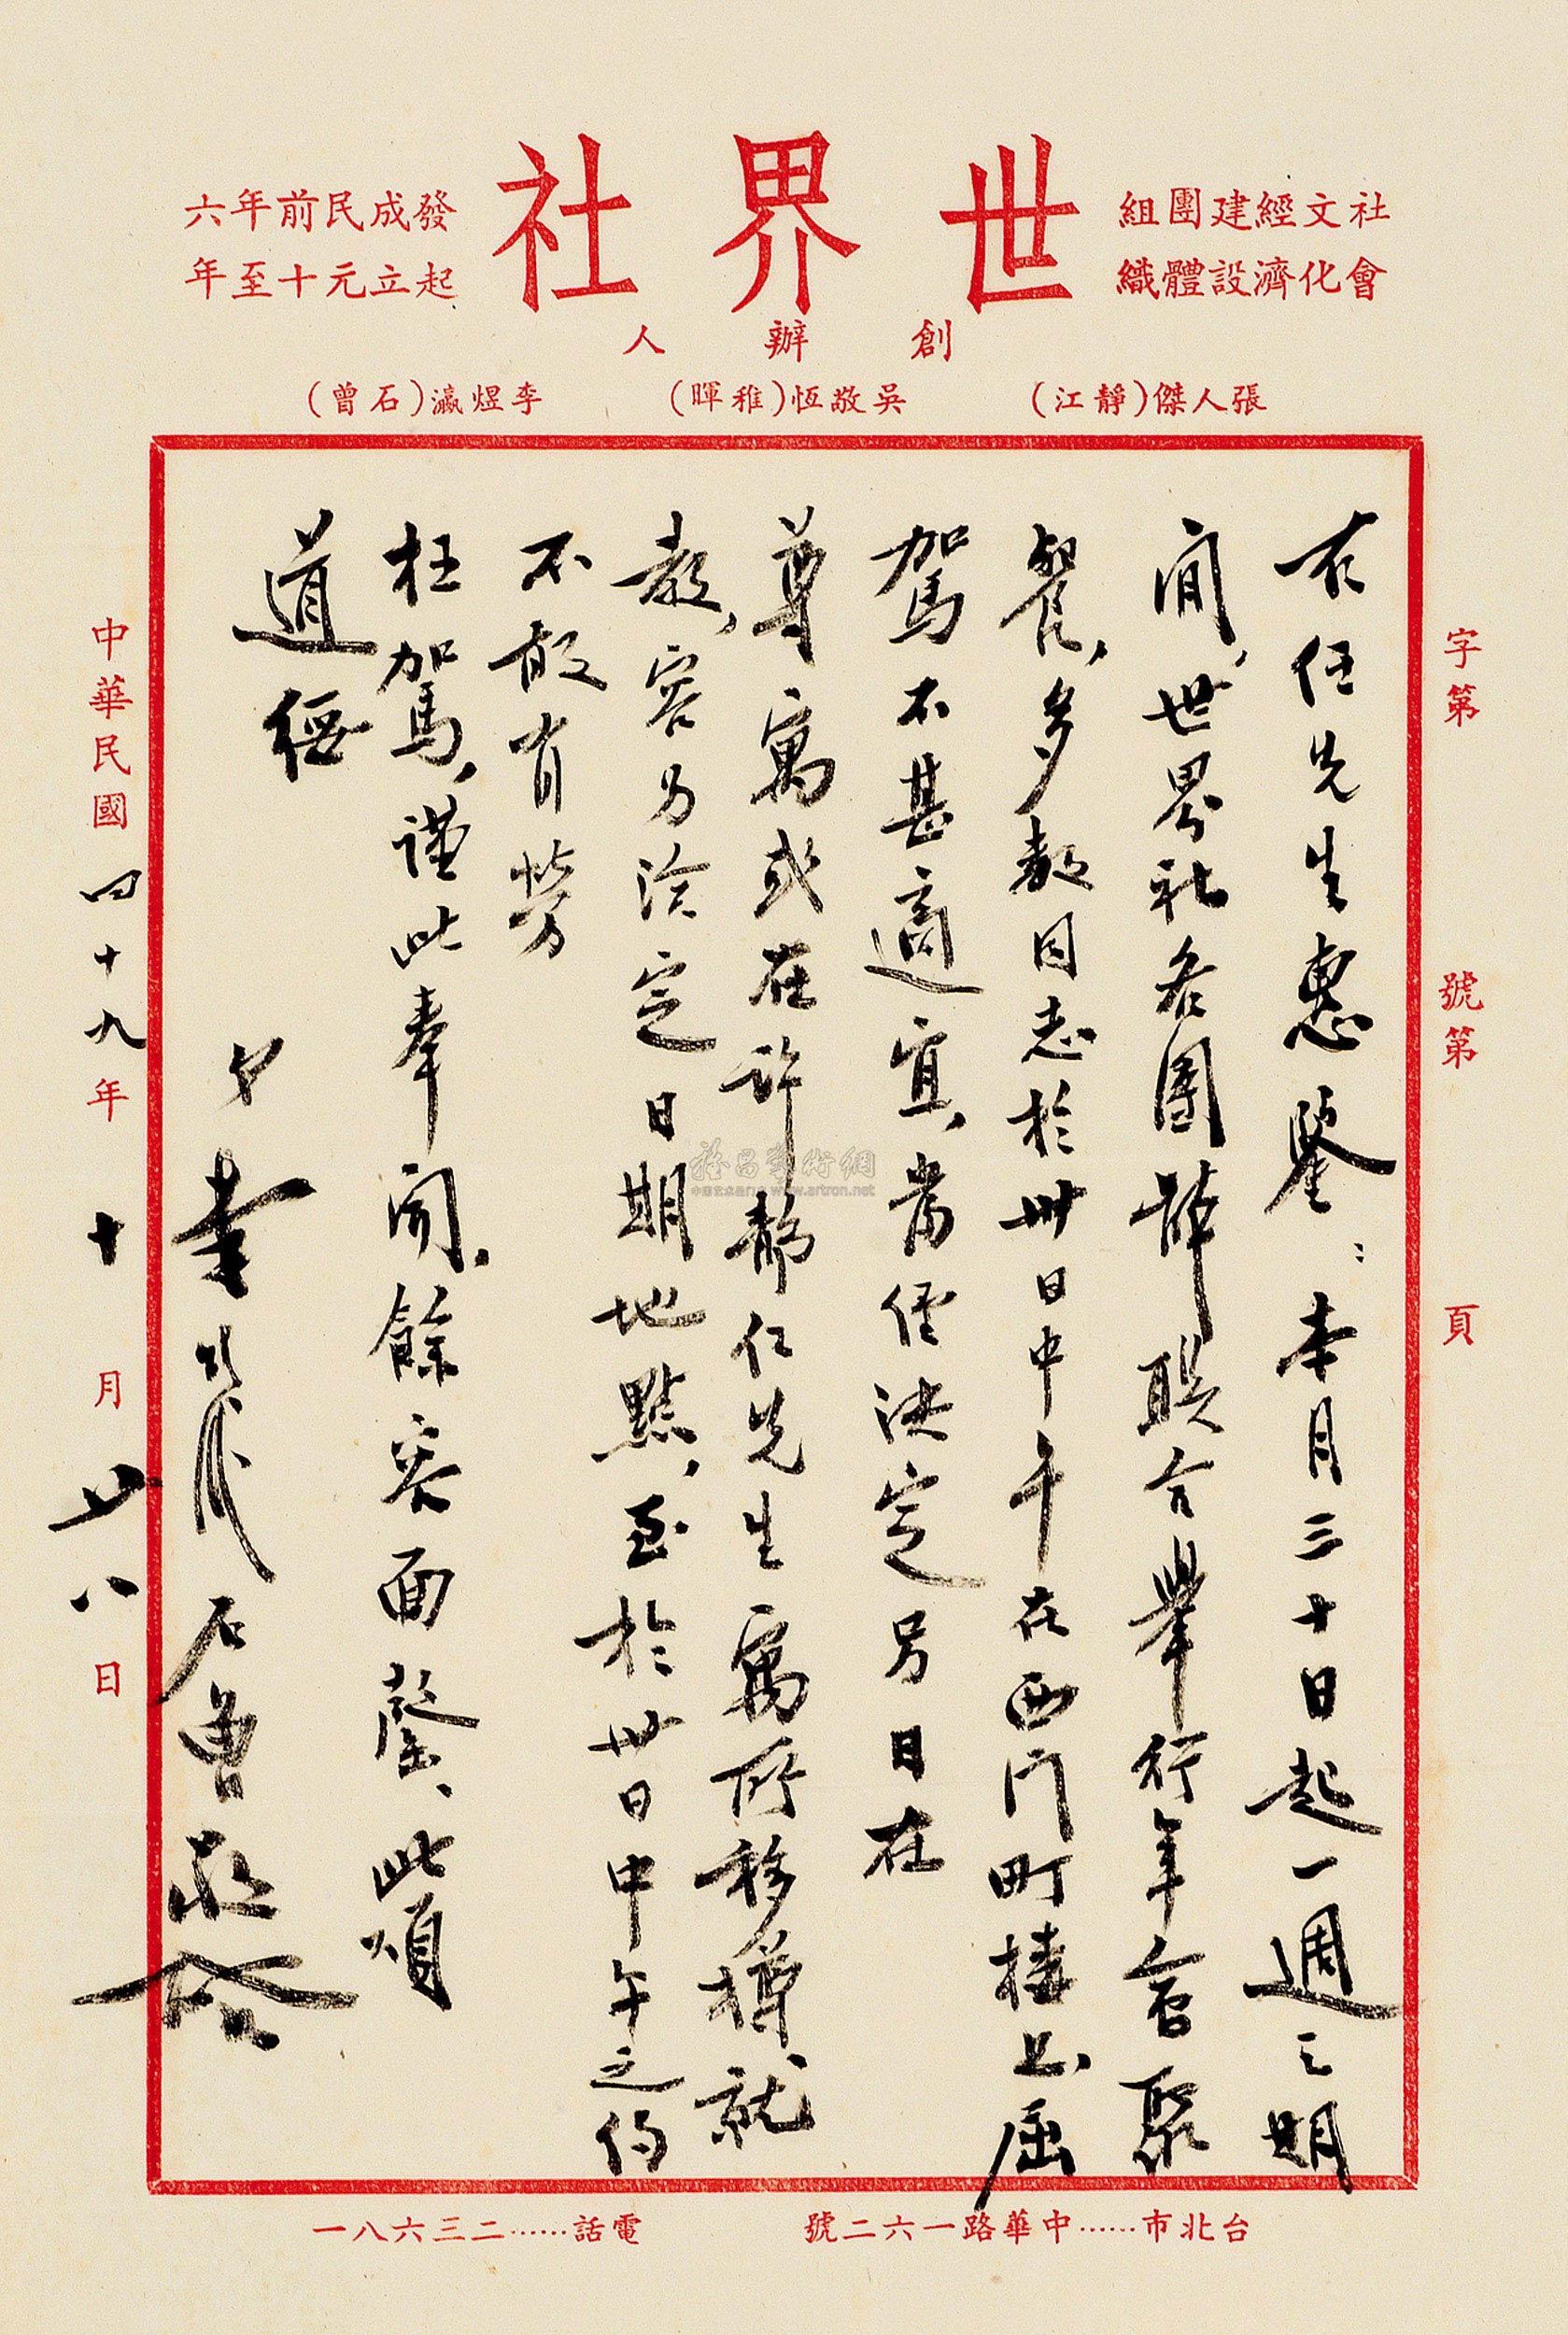 社會文化經濟建設團體組織
世界社
發起成立民元前十年至六年
創辦人
張人傑(靜江) 吳敬恆(稚暉) 李煜瀛(石曾)
字第 號第 頁
右任先生惠鑒:本月三十日起一週之期
間,世界社各團體联合舉行年會聚
餐,多數同志於卅日中午在西門町樓上屈
駕不甚適宜,當經決定另日在
尊寓或在許靜仁先生寓所移樽就
教,容另洽定日期地點,至於卅日中午之約
不敢有勞
枉駕,謹此奉聞,餘容面罄,此頌
道綏
弟李煜瀛石曾敬啓
中華民國四十九年十月廿八日
台北市……中華路一六二號 電話……二三六八一
雅昌藝術網
www.artron.net